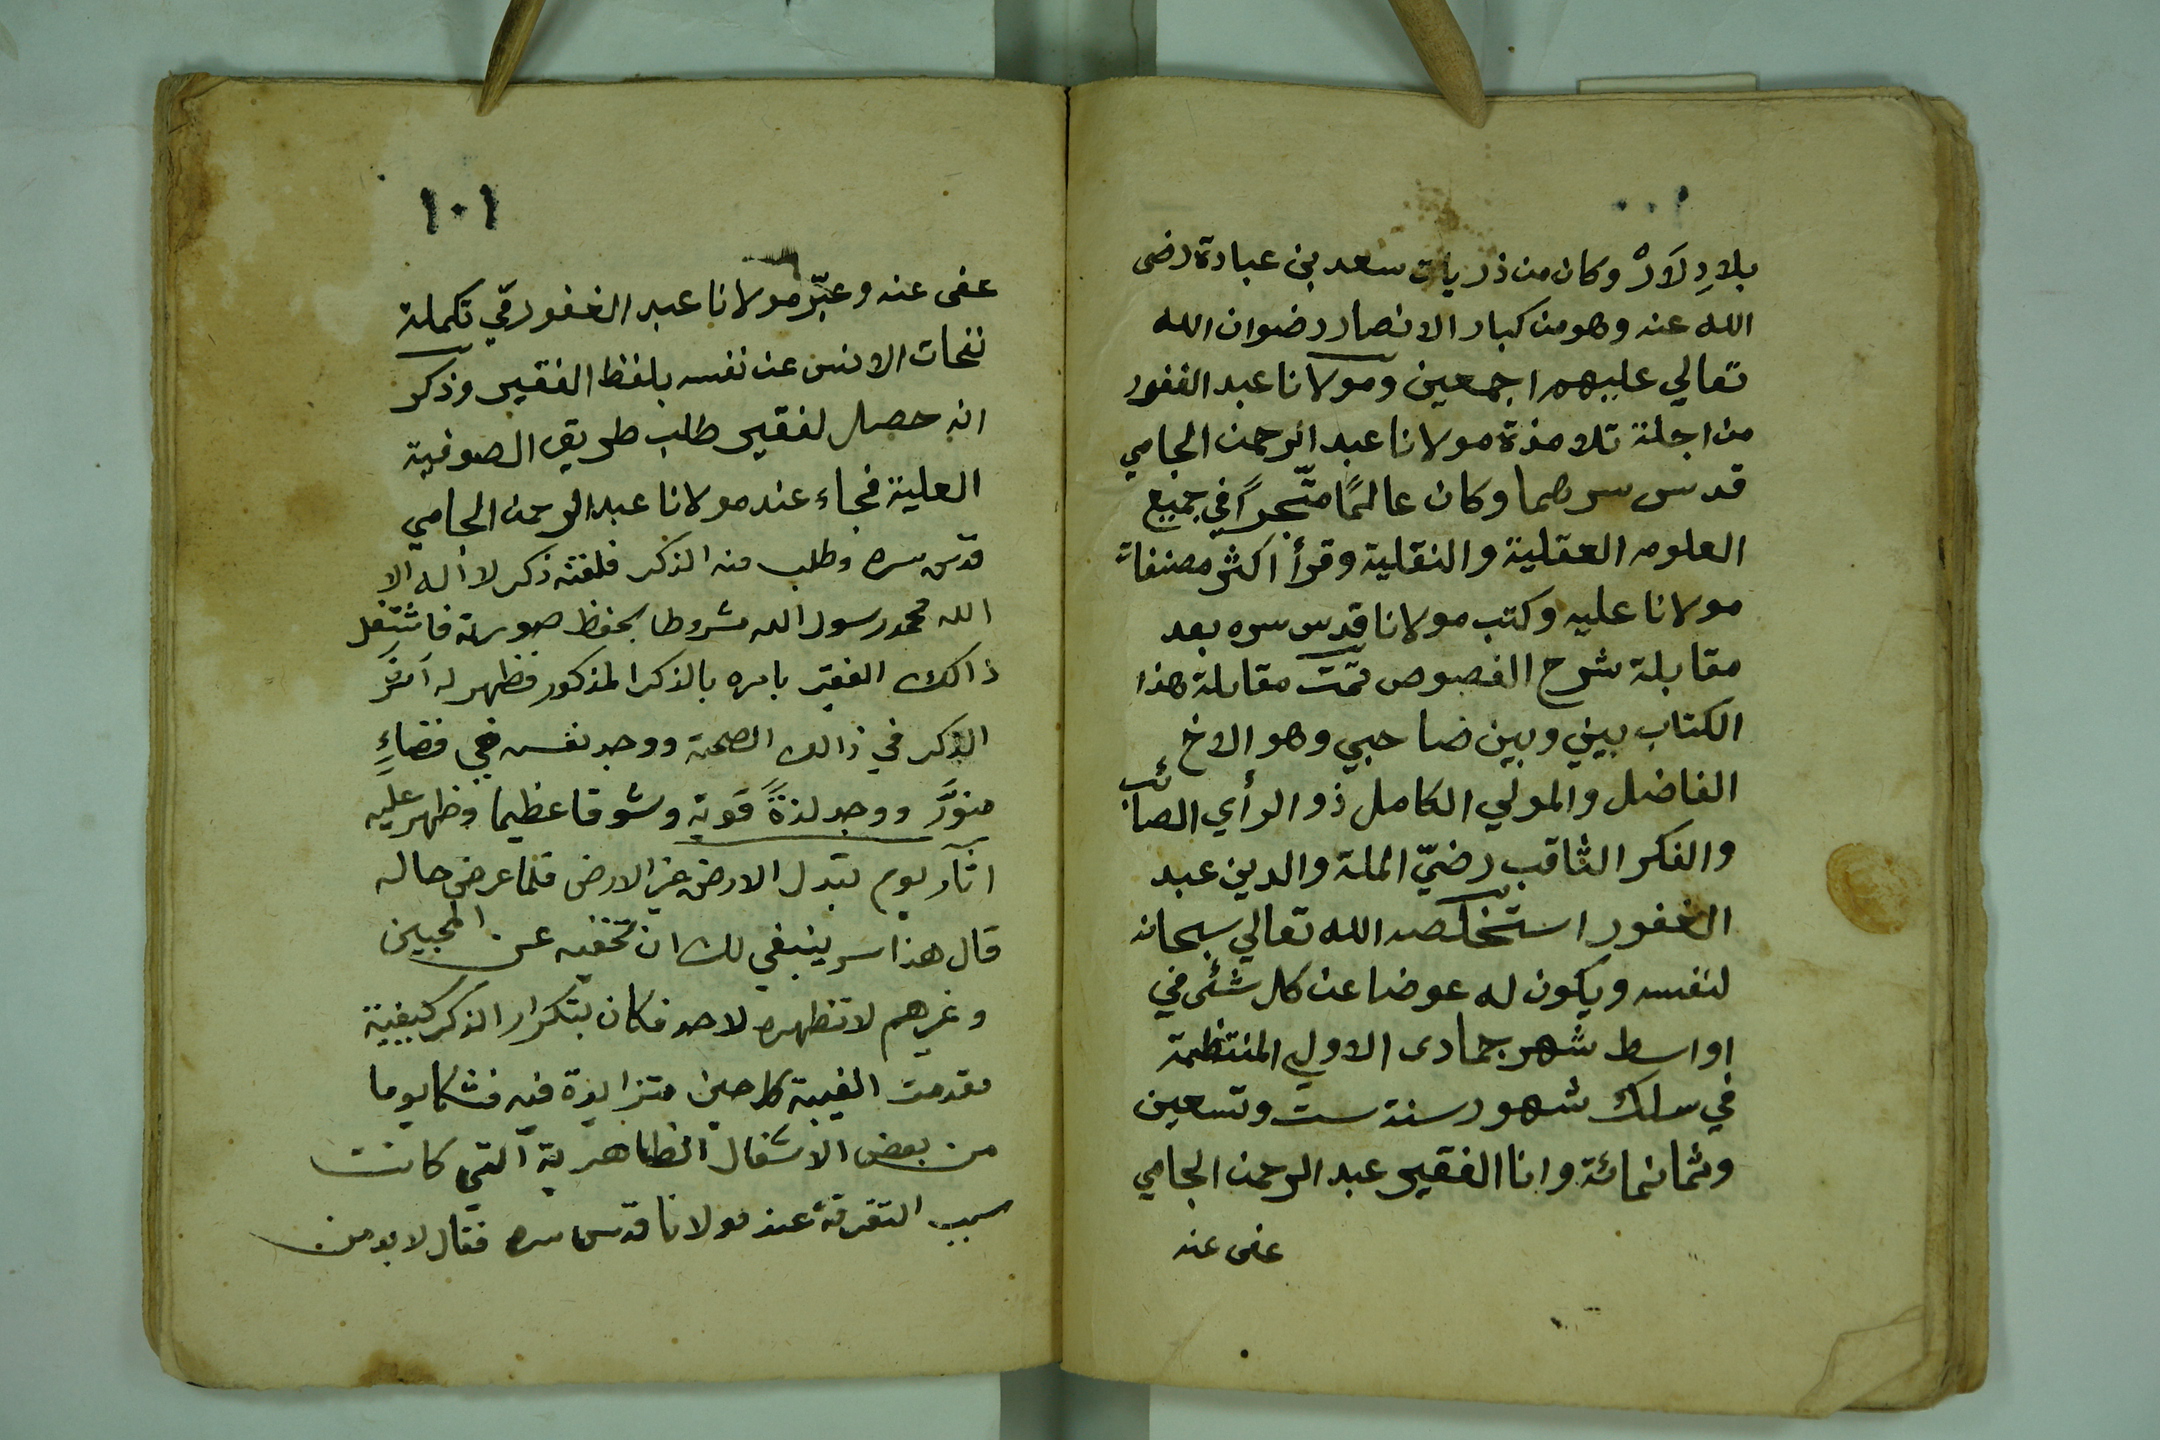 ١٠٠
بلادِ لَارْ وكان من ذريات سعد بن عبادة رضى
الله عنه وهو من كبار الانصار رضوان الله
تعالي عليهم اجمعين ومولانا عبد الغفور
من اجلة تلامذة مولانا عبد الرحمن الجامي
قدس سرهما وكان عالمًا متبحرًا في جميع
العلوم العقلية والنقلية وقرأ اكثر مصنفات
مولانا عليه وكتب مولانا قدس سره بعد
مقابلة شرح الفصوص تمّت مقابلة هذا
الكتاب بيني وبين صاحبي وهو الاخ
الفاضل والمولي الكامل ذو الرأي الصائب
والفكر الثاقب رضيّ الملة والدين عبد
الغفور استخلصه الله تعالي سبحانه
لنفسه ويكون له عوضا عن كل شئى في
اواسط شهر جمادى الاولي المنتظمة
في سلك شهور سنة ست وتسعين
وثمانمائة وانا الفقير عبد الرحمن الجامي
عفى عنه
١٠١
عفى عنه وعبّر مولانا عبد الغفور في تكملة
نفحات الانس عن نفسه بلفظ الفقير وذكر
انه حصل لفقير طلب طريق الصوفية
العلية فجاء عند مولانا عبد الرحمن الجامي
قدس سره وطلب منه الذكر فلقنه ذكر لا اله الا
الله محمد رسول الله مشروطا بحفظ صورته فاشتغل
ذالك الفقير بامره بالذكر المذكور فظهر له اثر
الذكر في ذالك الصحبة ووجد نفسه في فضاءٍ
منوَّر ووجد لذةً قوية وشوقا عظيما وظهر عليه
اثار يوم تبدل الارض غير الارض فلما عرض حاله
قال هذا سر ينبغي لك ان تخفيه عن المحبين
وغيرهم لا تظهره لاحد فكان بتكرار الذكر كيفية
مقدمت الغيبة كل حين متزايدة فيه فشكا يوما
من بعض الاشغال الظاهرية التي كانت
سبب التفرقة عند مولانا قدس سره فقال لا بد من